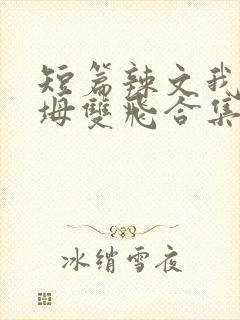 短篇辣文我
坶雙飛合集
冰绡雪夜